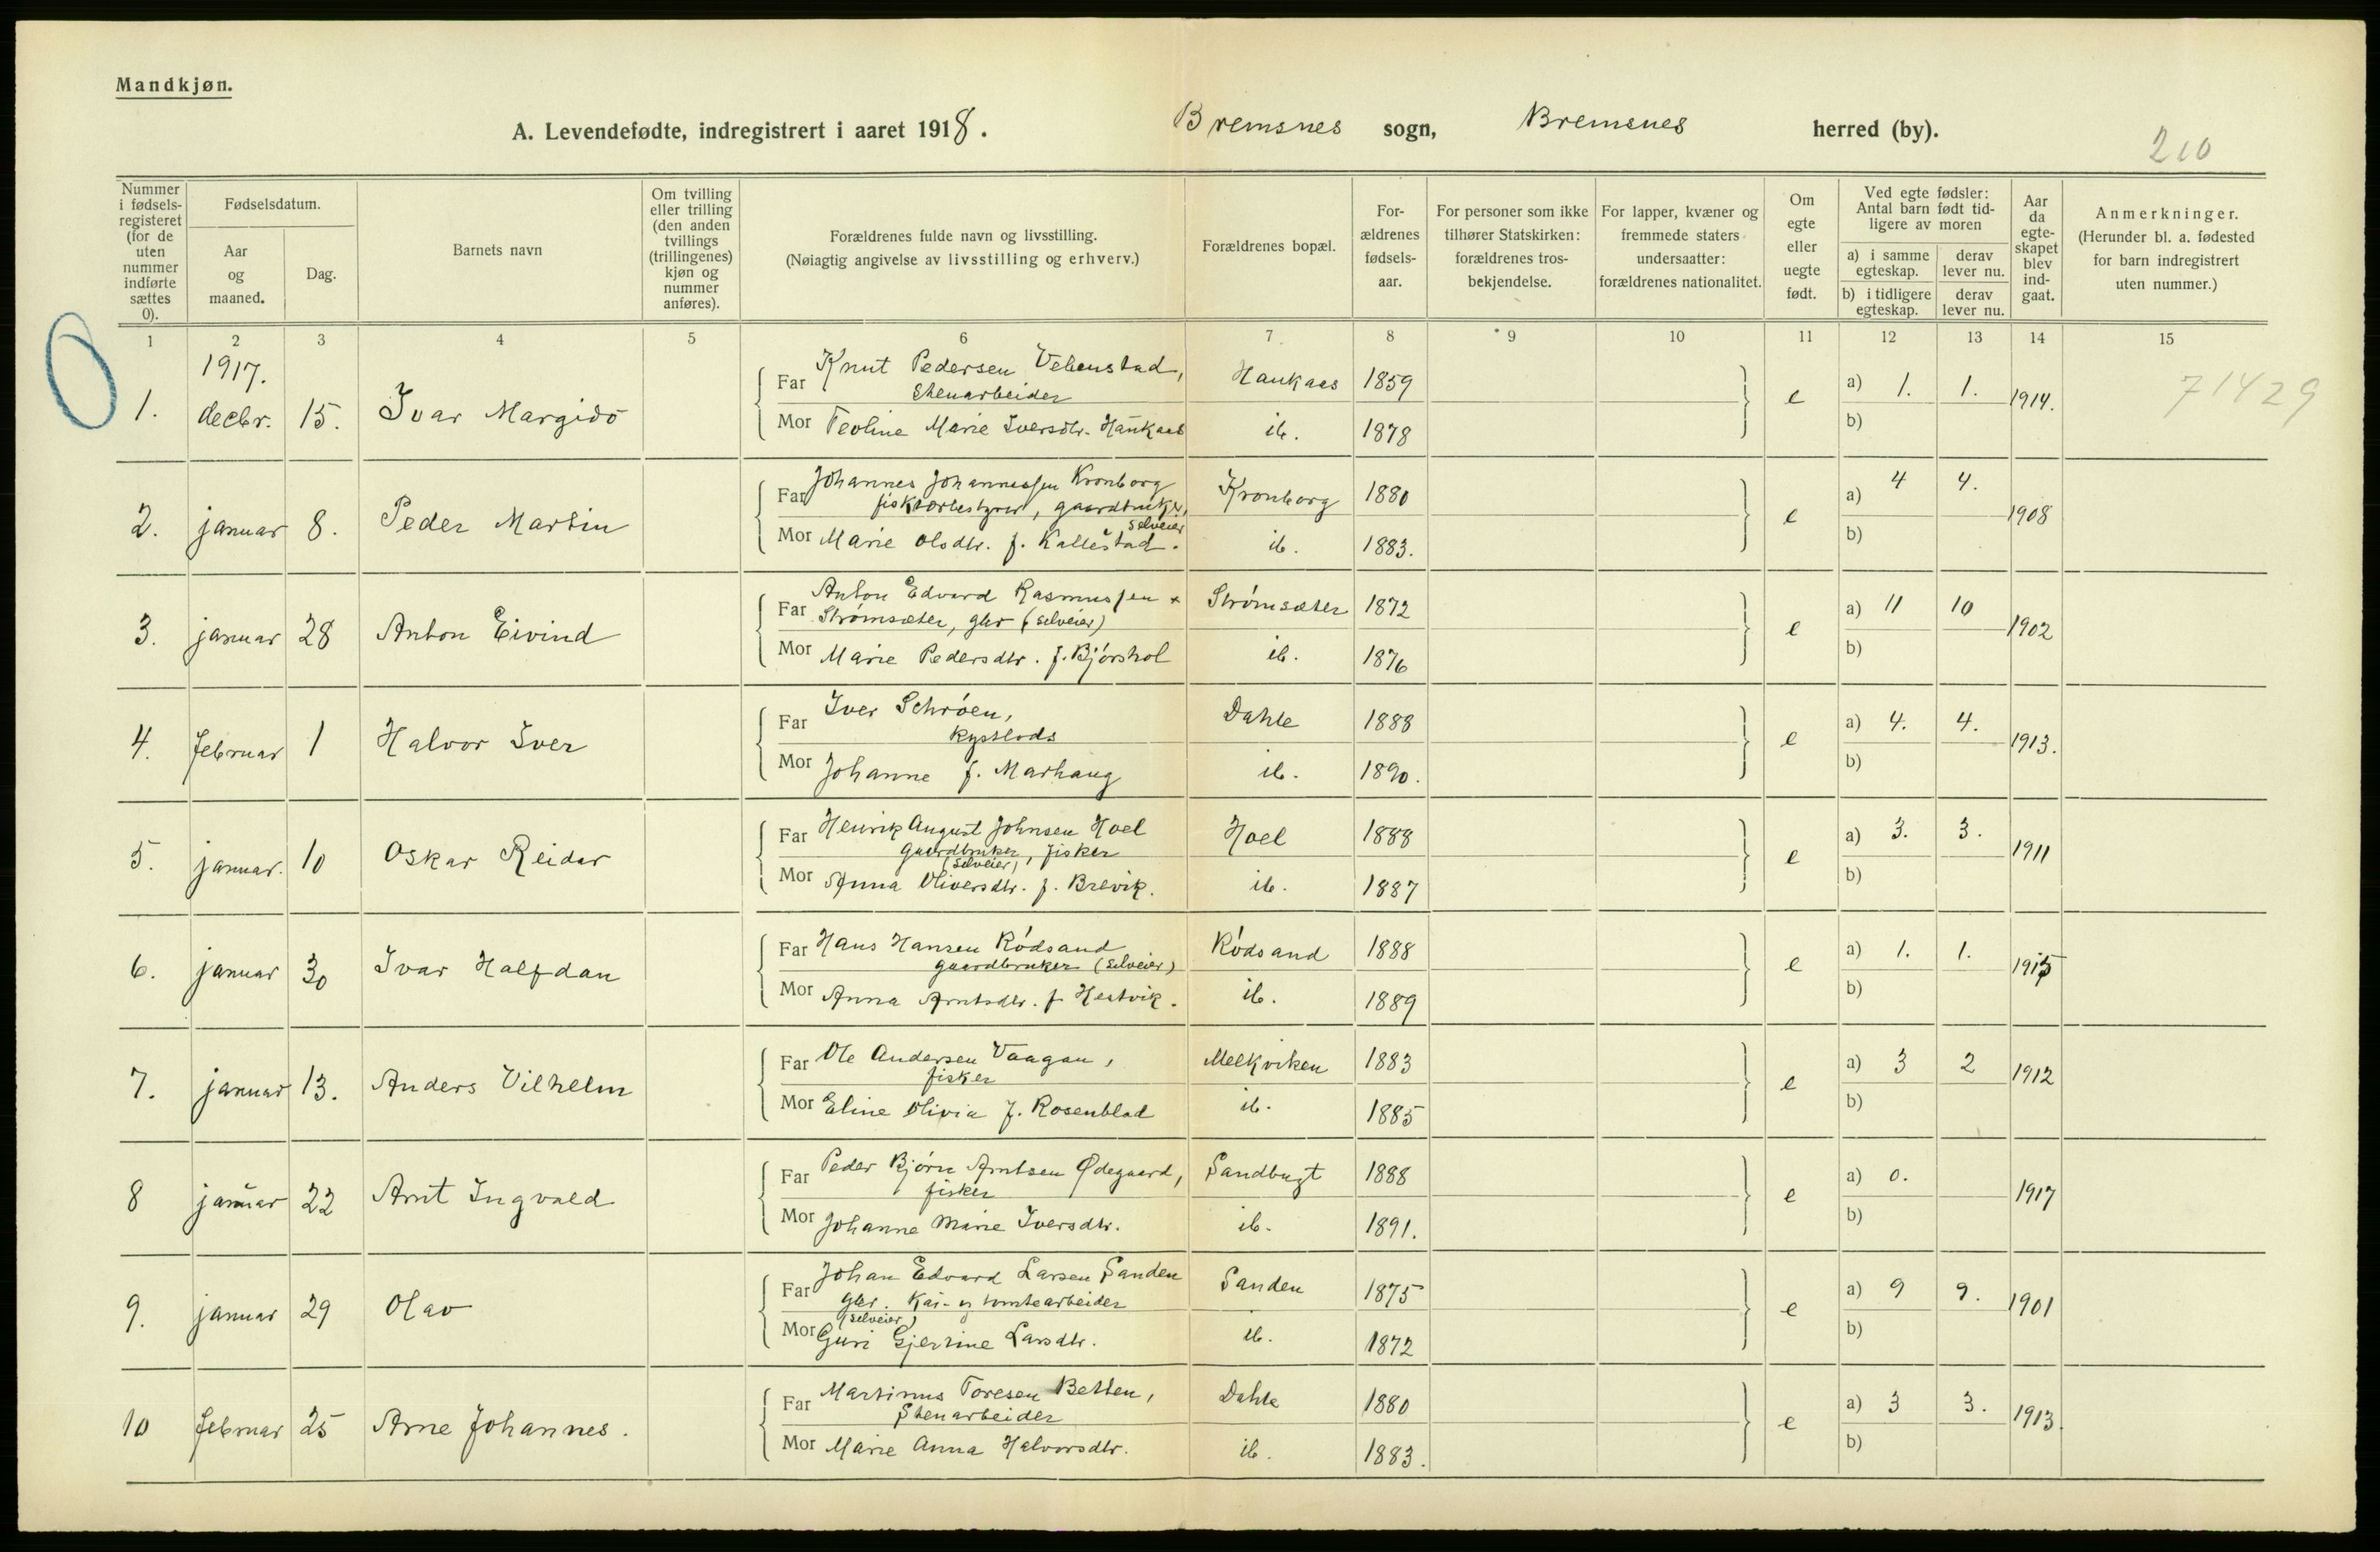 Mandkjøn.
A. Levendefødte, indregistrert i aaret 1918. Bremsnes sogn, Bremsnes herred (by).
210
Nummer i fødsels-registeret (for de uten nummer indførte sættes 0).
Fødselsdatum.
Aar og maaned.
Dag.
Barnets navn
Om tvilling eller trilling (den anden tvillings (trillingenes) kjøn og nummer anføres).
Forældrenes fulde navn og livsstilling.
(Nøiagtig angivelse av livsstilling og erhverv.)
Forældrenes bopæl.
For-ældrenes fødsels-aar.
For personer som ikke tilhører Statskirken: forældrenes tros-bekjendelse.
For lapper, kvæner og fremmede staters undersaatter: forældrenes nationalitet.
Om egte eller uegte født.
Ved egte fødsler: Antal barn født tid-ligere av moren
a) i samme egteskap.
derav lever nu.
b) i tidligere egteskap.
derav lever nu.
Aar da egte-skapet blev ind-gaat.
Anmerkninger.
(Herunder bl. a. fødested for barn indregistrert uten nummer.)
1 2 3 4 5 6 7 8 9 10 11 12 13 14 15
1917.
Far Knut Pedersen Vebenstad, Haukaas 1859
Stenarbeider
1. decbr. 15. Ivar Margido e a) 1. 1. 1914. 71429
b)
Mor Teoline Marie Iversdtr. Haukaas ib. 1878
Far Johannes Johannessen Kronborg Kronborg 1880
gaardbruker,
selveier
2. januar 8. Peder Martin e a) 4 4. 1908
b)
Mor Marie Olsdtr. f. Kallestad. ib. 1883.
Far Anton Edvard Rasmussen Strømsæter 1872
Strømsæter, gbr (selveier)
3. januar 28 Anton Eivind e a) 11 10 1902
b)
Mor Marie Pedersdtr. f. Bjørshol ib. 1876
Far Iver Schrøen, Dahle 1888
Kystlods
4. februar 1 Halvor Iver e a) 4. 4. 1913.
b)
Mor Johanne f. Marhaug ib. 1890.
Far Henrik August Johnsen Hoel Hoel 1888
Gaardbruker, fisker
(selveier)
5. januar. 10 Oskar Reidar e a) 3. 3. 1911
b)
Mor Anna Oliversdtr. f. Brevik. ib. 1887
Far Hans Hansen Rødsand Rødsand 1888
gaardbruker (selveier)
6. januar 30 Ivar Halfdan e a) 1. 1. 1915
b)
Mor Anna Arntsdtr. f. Hestvik. ib. 1889
Far Ole Andersen Vaagan, Melkviken 1883
fisker
7. januar 13. Anders Vilhelm e a) 3 2 1912
b)
Mor Eline Olivia f. Rosenblad ib. 1885
Far Peder Bjørn Arntsen Ødegaard, Sandbugt 1888
fisker
8 januar 22 Arnt Ingvald e a) 0. 1917
b)
Mor Johanne Marie Iversdtr. ib. 1891.
Far Johan Edvard Larsen Sanden Sanden 1875
gbr. Kai- og tomtearbeider
(selveier)
9. januar 29 Olav e a) 9 9. 1901
b)
Mor Guri Gjertine Larsdtr. ib. 1872
Far Martinus Toresen Betten, Dahle 1880
Stenarbeider
10 februar 25 Arne Johannes. e a) 3 3. 1913.
b)
Mor Marie Anna Halvorsdtr. ib. 1883.